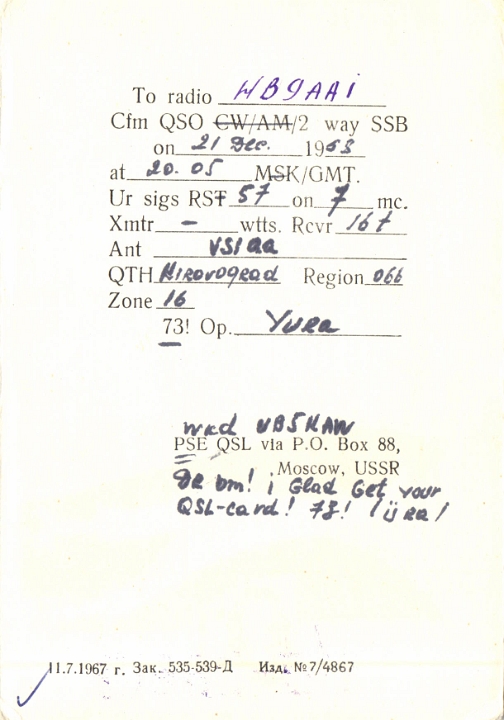 To radio WB9AAI
Cfm QSO CW/AM/2 way SSB
on 21 Dec. 1968
at 20.05 MSK/GMT.
Ur sigs RST 57 on 7 mc.
Xmtr - wtts. Rcvr 16t
Ant VS1AA
QTH Kirovograd Region 066
Zone 16
73! Op. Yura
wkd UB5KAW
PSE QSL via P.O. Box 88,
Moscow, USSR
Dr om! i Glad Get your
QSL-card! 73! /üra/
11.7.1967 г. Зак. 535-539-Д Изд. №7/4867